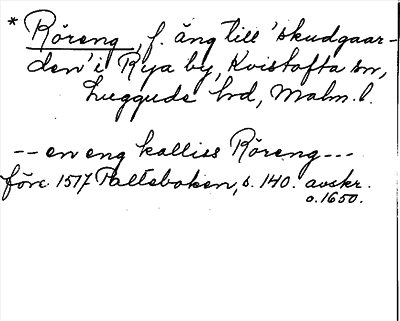 * Röreng, f. äng till 'skudgaar-
den' i Rya by, Kvistofta sn,
Luggude hd, Malm. l.
-- en eng kalliss Röreng ---
före 1517 Palteboken, s. 140. avskr.
o. 1650.